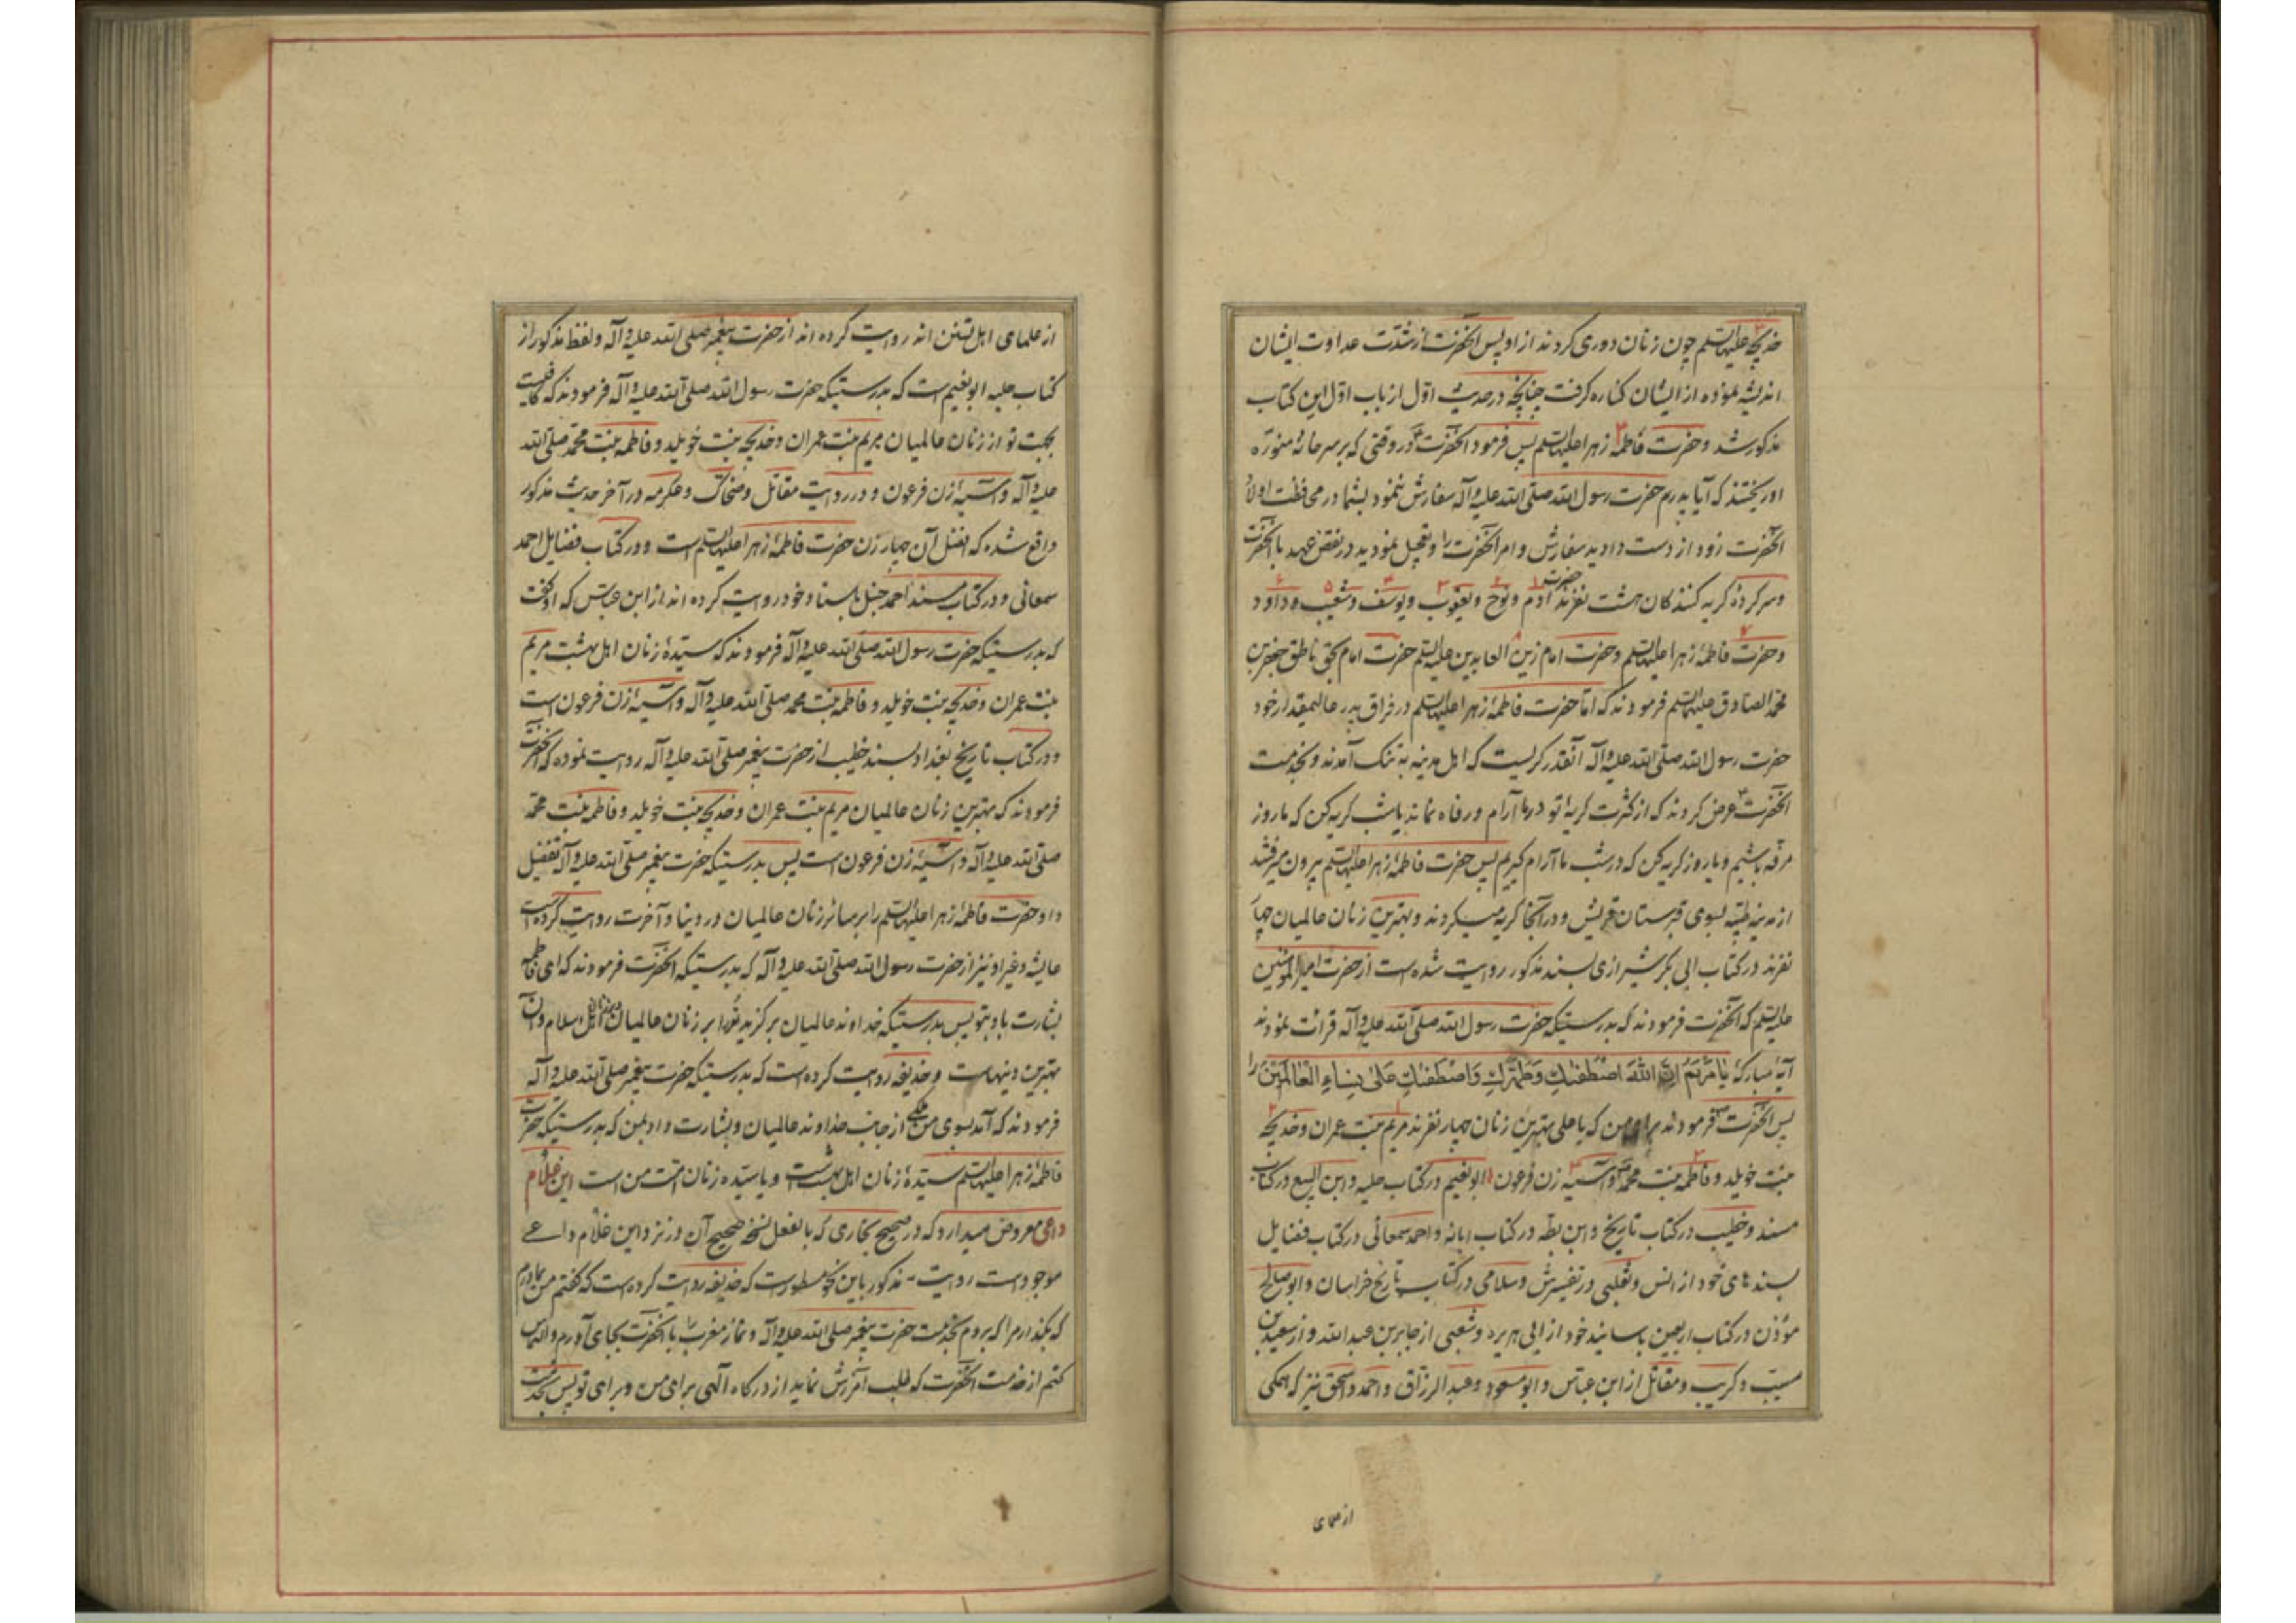 خدیجه علیها السلم چون زنان دوری کردند از او پس آنحضرت از شدت عداوت ایشان
اندیشه نموده از ایشان کناره گرفت چنانچه در حدیث اول از باب اول این کتاب
مذکور شد و حضرت فاطمه زهرا علیها السلم پس فرمود آنحضرت در وقتی که بر سر خانه منوره
او ریختند که آیا پدرم حضرت رسول الله صلی الله علیه و آله سفارش ننمود بشما در محافظت اولاد
آنحضرت زود از دست دادید سفارش و امر آنحضرت را و تعجیل نمودید در نقض عهد با آنحضرت
و سر کرده گریه کنندگان هشت نفرند حضرت آدم و نوح و یعقوب و یوسف و شعیب و داود
و حضرت فاطمه زهرا علیها السلم و حضرت امام زین العابدین علیه السلم حضرت امام بحق ناطق جعفر بن
محمد الصادق علیهما السلم فرمودند که اما حضرت فاطمه زهرا علیها السلم در فراق پدر عالیمقدار خود
حضرت رسول الله صلی الله علیه و آله آنقدر گریست که اهل مدینه به تنک آمدند و بخدمت
آنحضرت عرض کردند که از کثرت گریه تو در ما آرام و رفاه نماند یا شب گریه کن که ما روز
مرفه باشیم و یا روز گریه کن که در شب ما آرام گیریم پس حضرت فاطمه زهرا علیها السلم بیرون میرفتند
از مدینه طیبه بسوی قبرستان قریش و در آنجا گریه میکردند و بهترین زنان عالمیان چهار
نفرند در کتاب ابی بکر شیرازی بسند مذکور روایت شده است از حضرت امیر المؤمنین
علیه السلم که آنحضرت فرمودند که بدرستیکه حضرت رسول الله صلی الله علیه و آله قرائت نمودند
آیه مبارکه یا مریم ان الله اصطفیک وطهرک واصطفیک علی نساء العالمین را
پس آنحضرت فرمودند برای من که یا علی بهترین زنان چهار نفرند مریم بنت عمران و خدیجه
بنت خویلد و فاطمه بنت محمد و آسیه زن فرعون ابو نعیم در کتاب حلیه و ابن البیع در کتاب
مسند و خطیب در کتاب تاریخ و ابن بطه در کتاب ابانه و احمد سمعانی در کتاب فضایل
بسندهای خود از انس و ثعلبی در تفسیرش و سلامی در کتاب تاریخ خراسان و ابو صالح
مؤذن در کتاب اربعین باسانید خود از ابی هریره و شعبی از جابر بن عبد الله و از سعید بن
مسیب و کریب و مقاتل از ابن عباس و ابو مسعود و عبد الرزاق و احمد و اسحق نیز که همگی
از علمای
از علمای اهل تسنن اند روایت کرده اند از حضرت پیغمبر صلی الله علیه و آله و لفظ مذکور از
کتاب حلیه ابو نعیم است که بدرستیکه حضرت رسول الله صلی الله علیه و آله فرمودند که کافیست
بجهت تو از زنان عالمیان مریم بنت عمران و خدیجه بنت خویلد و فاطمه بنت محمد صلی الله
علیه و آله و آسیه زن فرعون و در روایت مقاتل و ضحاک و عکرمه در آخر حدیث مذکور
واقع شده که افضل آن چهار زن حضرت فاطمه زهرا علیها السلم است و در کتاب فضایل احمد
سمعانی و در کتاب مسند احمد حنبل باسناد خود روایت کرده اند از ابن عباس که او گفت
که بدرستیکه حضرت رسول الله صلی الله علیه و آله فرمودند که سیده زنان اهل بهشت مریم
بنت عمران و خدیجه بنت خویلد و فاطمه بنت محمد صلی الله علیه و آله و آسیه زن فرعون است
و در کتاب تاریخ بغداد بسند خطیب از حضرت پیغمبر صلی الله علیه و آله روایت نموده که آنحضرت
فرمودند که بهترین زنان عالمیان مریم بنت عمران و خدیجه بنت خویلد و فاطمه بنت محمد
صلی الله علیه و آله و آسیه زن فرعون است پس بدرستیکه حضرت پیغمبر صلی الله علیه و آله تفضیل
داد حضرت فاطمه زهرا علیها السلم را بر سائر زنان عالمیان در دنیا و آخرت روایت کرده است
عایشه و غیر او نیز از حضرت رسول الله صلی الله علیه و آله که بدرستیکه آنحضرت فرمودند که ای فاطمه
بشارت باد بتو پس بدرستیکه خداوند عالمیان برگزید ترا بر زنان عالمیان و زنان اهل اسلام و آن
بهترین دینهاست و حذیفه روایت کرده است که بدرستیکه حضرت پیغمبر صلی الله علیه و آله
فرمودند که آمد بسوی من ملکی از جانب خداوند عالمیان و بشارت داد بمن که بدرستیکه حضرت
فاطمه زهرا علیها السلم سیده زنان اهل بهشت است و یا سیده زنان امت من است این غلام
داعی معروض میدارد که در صحیح بخاری که بالفعل نسخه صحیح آن در نزد این غلام داعی
موجود است روایت مذکور باین نحو مسطور است که حذیفه روایت کرده است که گفتم من بمادرم
که بگذار مرا که بروم بخدمت حضرت پیغمبر صلی الله علیه و آله و نماز مغرب را با آنحضرت بجای آورم و التماس
کنم از خدمت آنحضرت که طلب آمرزش نماید از درگاه الهی برای من و برای تو پس بخدمت